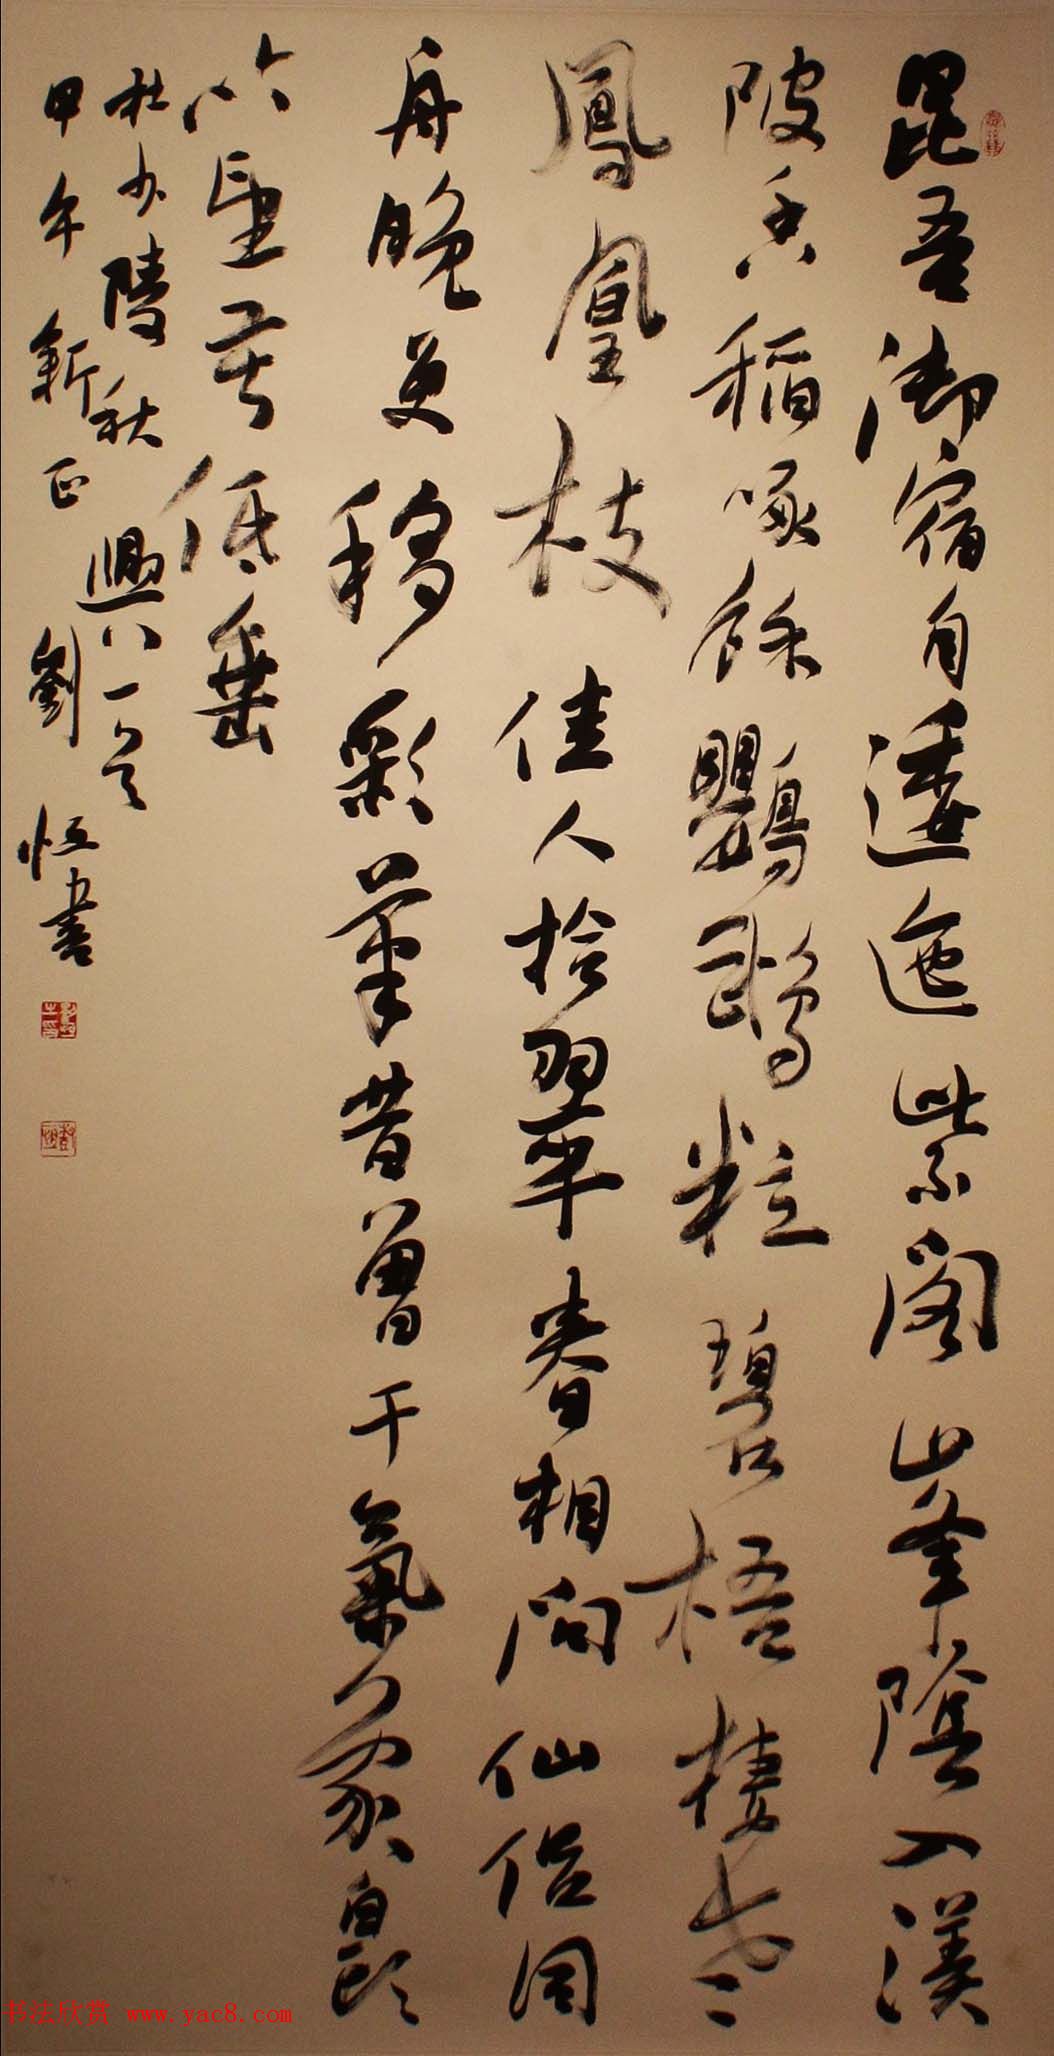 昆吾御宿自逶迤紫閣峯陰入渼
陂香稻啄餘鸚鵡粒碧梧棲老
鳳凰枝佳人拾翠春相問仙侣同
舟晚更移彩筆昔曾干氣象白頭
吟望苦低垂
杜少陵秋興八一首
甲午新正劉恒書
书法欣赏 www.yac8.com